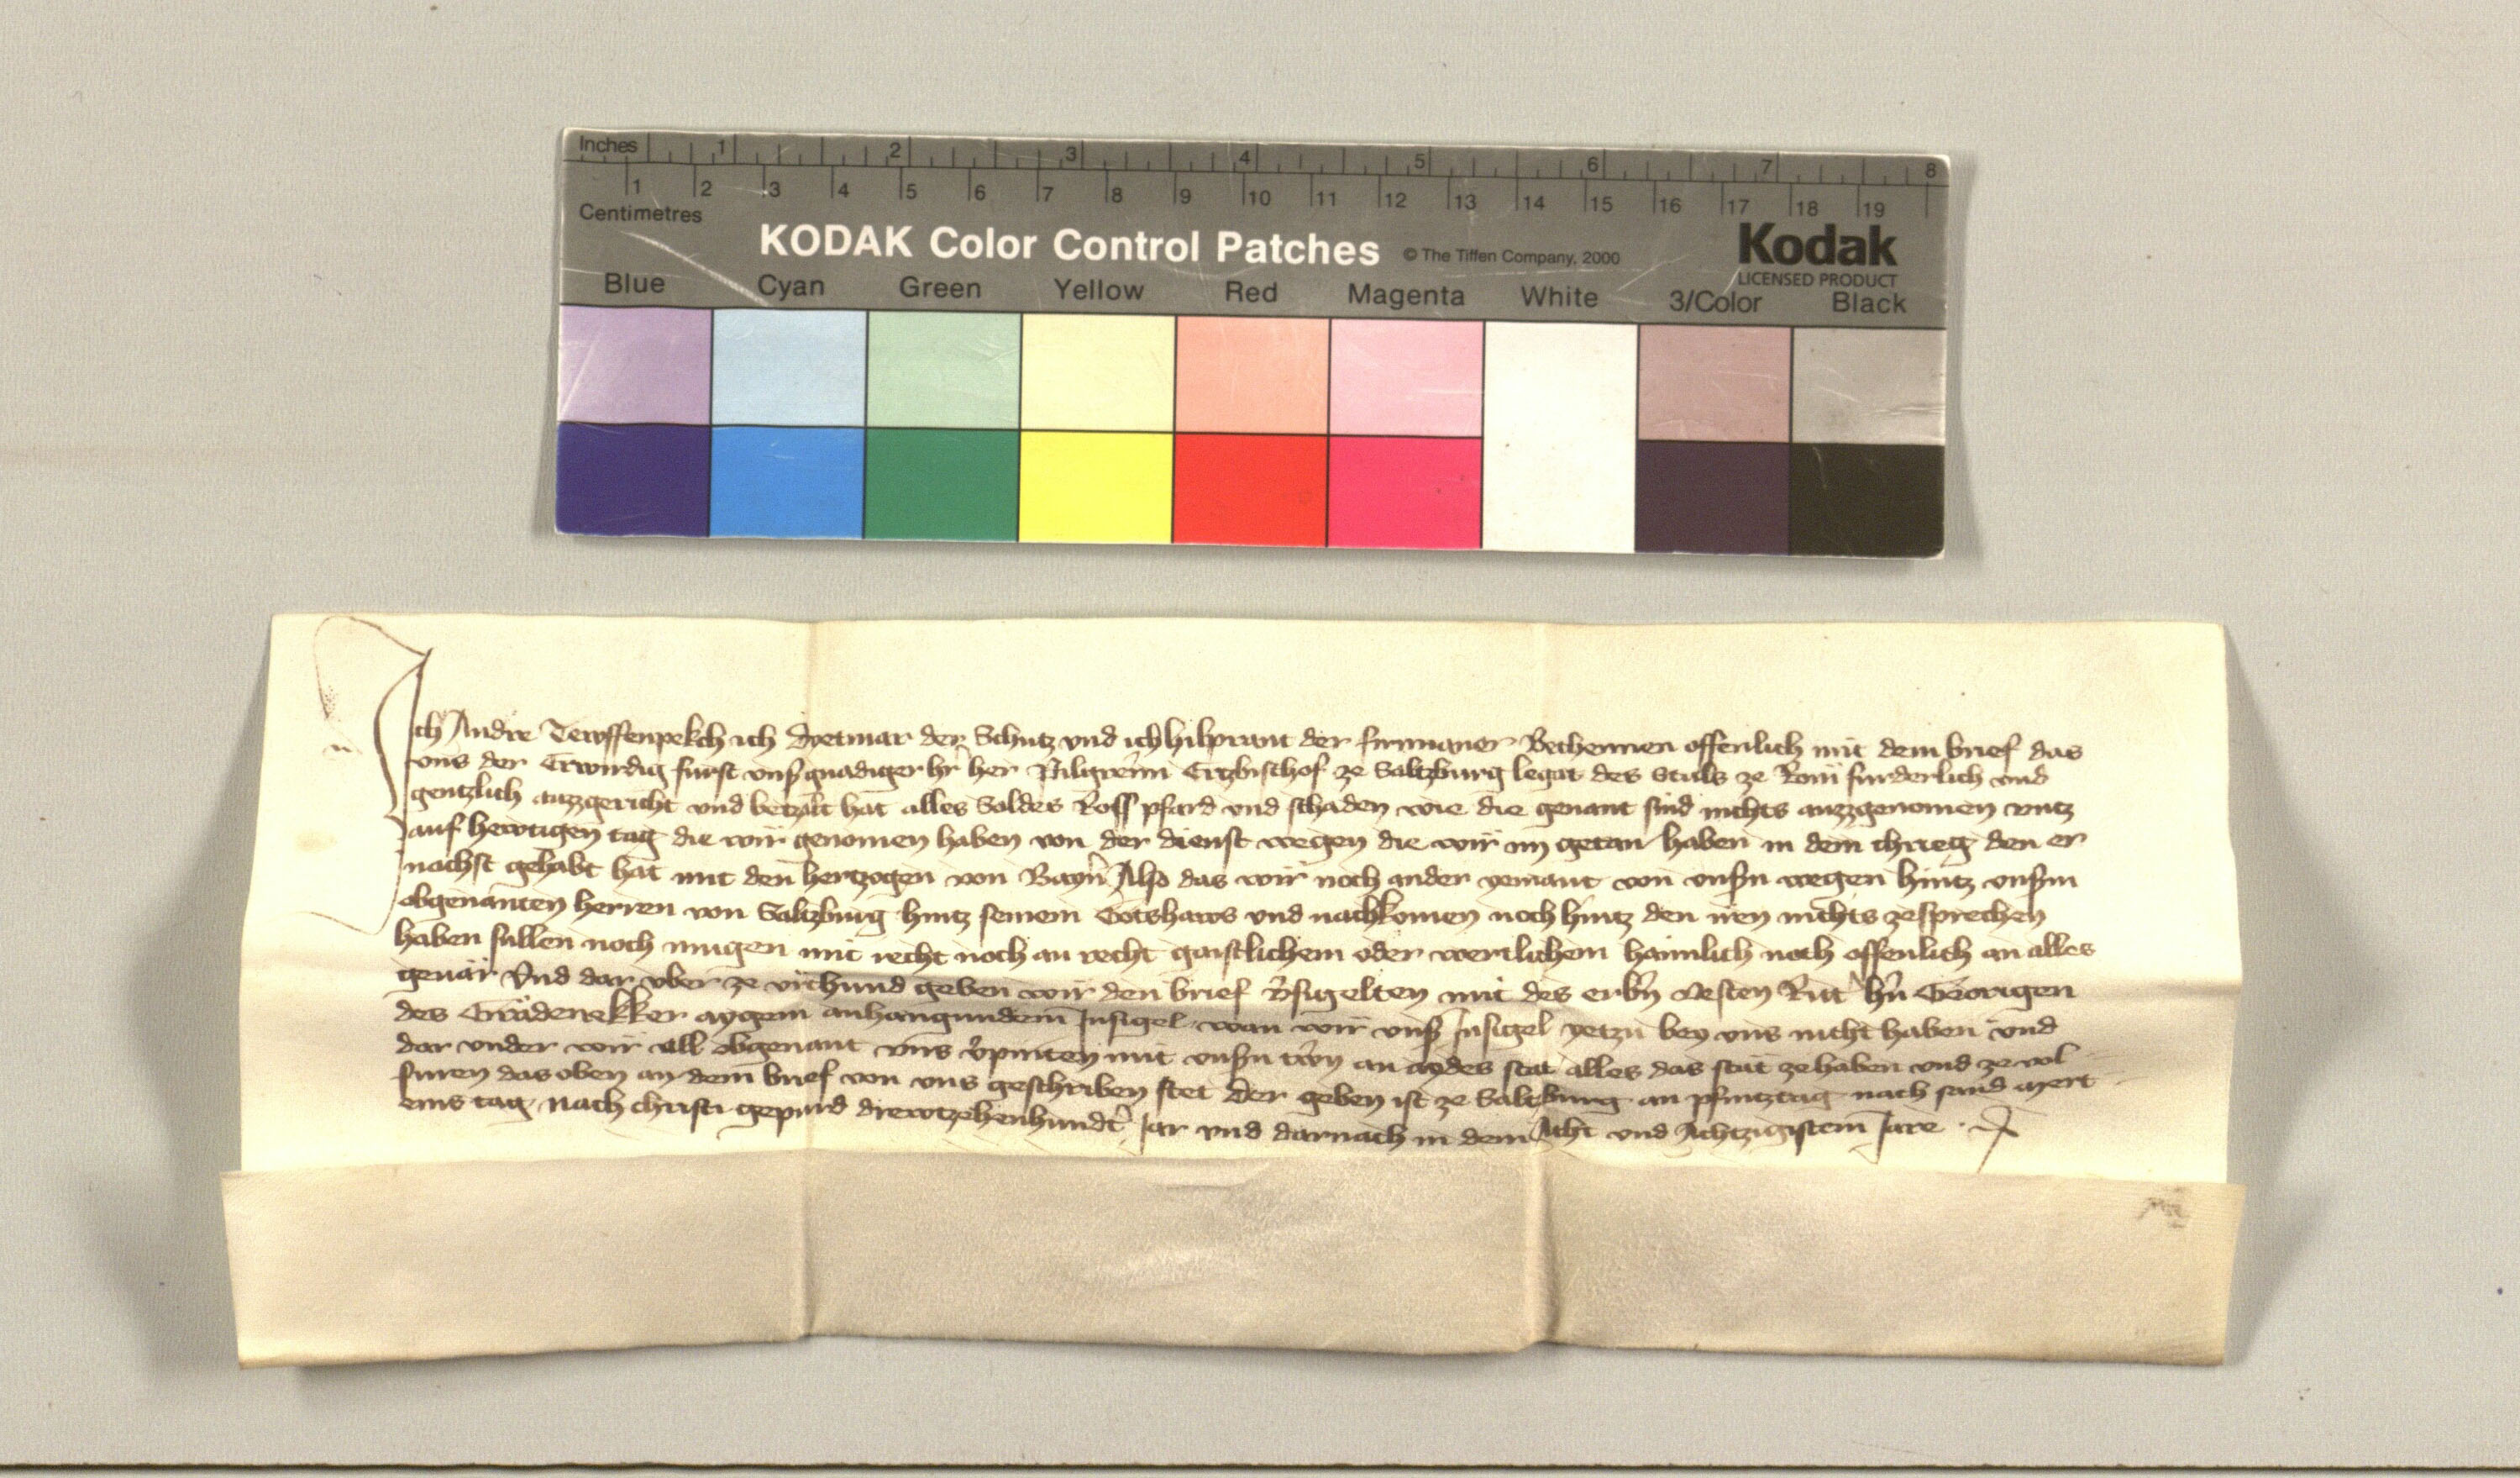 Inches 1 2 3 4 5 6 7 8
1 2 3 4 5 6 7 8 9 10 11 12 13 14 15 16 17 18 19
Centimetres
KODAK Color Control Patches © The Tiffen Company, 2000 Kodak
LICENSED PRODUCT
Blue Cyan Green Yellow Red Magenta White 3/Color Black
Ich Andre ich Dyetmar der Schutz vnd ich hilprant der Bechennen offenlich mit dem brief das
vns der Erwirdig furst vnß gnadiger hr her Pilgreim Ertzbischof ze Saltzburg legat des Stuls ze Rom furderlich vnd
gentzlich auzgericht vnd betzalt hat alles Soldes Ross pfard vnd schaden wie die genant sind nichts auzzgenomen vntz
auf hewtigen tag die wir genomen haben von der dienst wegen die wir im getan haben in dem chrieg den er
nachst gehabt hat mit den hertzogen von Bayrn Also das wir noch ander yemant von vnßn wegen hintz vnßm
obgenanten herren von Saltzburg hintz seinem Gotshaws vnd nachkomen noch hintz den iren nichts ze sprechen
haben sullen noch mugen mit recht noch an recht gaistlichem oder werltlichem haimlich noch offenlich an alles
geuar Vnd dar vber ze vrchund geben wir den brief vsigelten mit des erbn vesten Ritt hn Georigen
des aygem anhangundem Insigel wan wir vnß Insigel yetzu bey vns nicht haben vnd
dar vnder wir all obgenant vns vpinten mit vnßn trwn an aydes stat alles das stat ze haben vnd ze vol
furen das oben an dem brief von vns geschriben stet Der geben ist ze Saltzburg an pfintztag nach sand mert
eins tag nach christi gepurd drewtzehenhundt Jar vnd darnach in dem Acht vnd Achtzigistem Jare